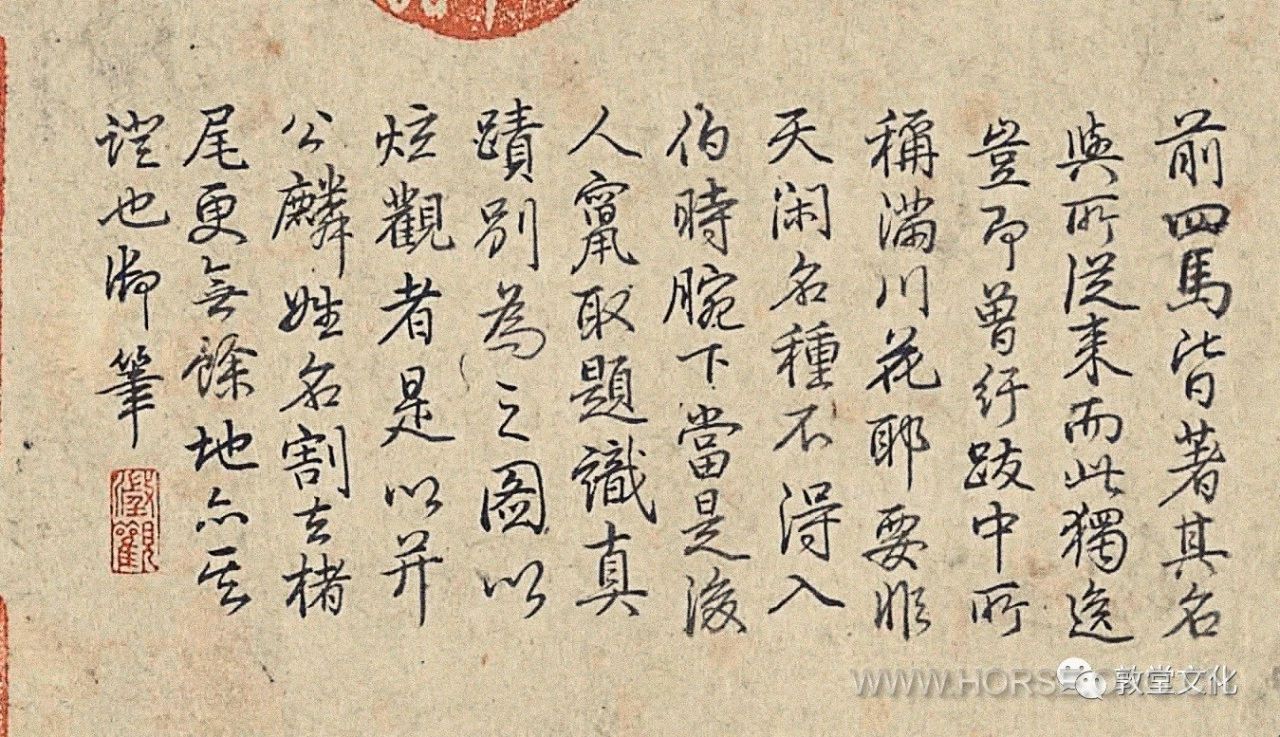 前四馬皆著其名
與所從来而此獨逸
豈即曾紆跋中所
稱滿川花耶要非
天閑名種不得入
伯時腕下當是後
人竄取題識真
蹟別為之圖以
炫觀者是以并
公麟姓名割去楮
尾更無餘地亦其
證也御筆
澂觀
WWW.HORSE
敦堂文化